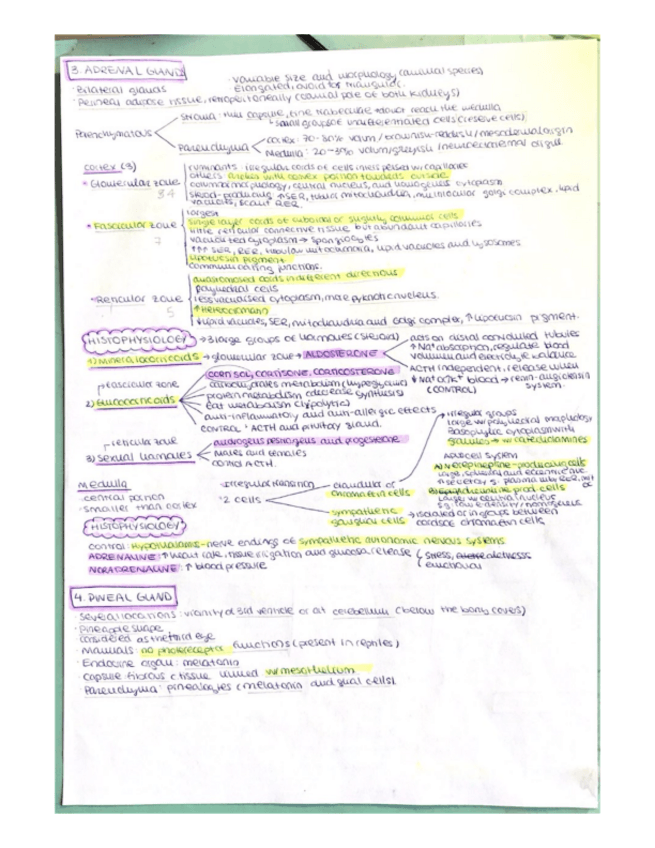 3. ADRENAL GLAND
· variable size and morphology (animal species)
· Bilateral glands
Elongated, ovoid to triangular.
· Perineal adipose tissue, retroperitoneally (cranial pole of both kidneys)
Stroma: thin capsule, fine trabeculae → do not reach the medulla
↳ small groups of undifferentiated cells (reserve cells)
Parenchymatous
Parenchyma
Cortex: 70-80% volum / brownish-reddish / mesodermal origin
Medulla: 20-30% volum/greyish / neuroectodermal origin
Cortex (3)
* Glomerular zone
ruminants: irregular cords of cells interspersed w. capillaries
others: arches with convex portion towards outside
columnar morphology, central nucleus, and homogenous cytoplasm
steroid-producing: ↑SER, tubul mitochondria, multilocular golgi complex, lipid
vacuols, scant RER.
* Fascicular zone
7
largest
single layer cords of cuboidal or slightly columnal cells
little reticular connective tissue but abundant capillaries
vacuolated cytoplasm → spongiocytes
↑↑↑ SER, RER, tubular mitochondria, lipid vacuoles and lysosomes
lipofuscin pigment
communicating junctions.
* Reticular zone
5
anastomosed cords in different directions
polyhedral cells
less vacuolised cytoplasm, more pyknotic nucleus.
↑ Heterocromatin
↓ lipid vacuoles, SER, mitochondria and Golgi complex, ↑ lipofuscin pigment.
HISTOPHYSIOLOGY → 3 large groups of hormones (steroid)
1) Mineralocorticoids → glomerular zone → ALDOSTERONE
acts on distal convoluted tubules
↑ Na+ absorption, regulate blood
volum and electrolyte balance
ACTH independent, release when
↓ Na+ or K+ blood → renin-angiotensin
(CONTROL) system.
fascicular zone
2) Glucocorticoids
CORTISOL, CORTISONE, CORTICOSTERONE
carbohydrates metabolism
protein metabolism (decrease synthesis)
Fat metabolism (lipolytic)
anti-inflammatory and anti-allergic effects
CONTROL: ACTH and pituitary gland.
reticular zone
3) Sexual hormones
androgens, estrogens and progesterone
Males and females
control ACTH.
Medulla
· central portion
· smaller than cortex
· Irregular transition
· 2 cells
chromatin cells
irregular groups
large w/ polyhedral morphology
Basophylic cytoplasm with
granules → w catecholamines
A) Norepinephrine-producing cells
B) Epinephrine prod. cells
large, w central nucleus
sympathetic
gangliar cells → isolated or in groups between
cords of chromatin cells
HISTOPHYSIOLOGY
Control: Hypothalamus-nerve endings of sympathetic autonomic nervous system
ADRENALINE: ↑ heart rate, more irrigation and glucose release
NORADRENALINE: ↑ blood pressure
stress, alertness
emotional
4. PINEAL GLAND
· Several locations: vicinity of 3rd ventricle or at cerebellum (below the bony covers)
· Pineapple shape
· considered as the third eye
· Mammals: no photoreceptor functions (present in reptiles)
· Endocrine organ: melatonin
· Capsule fibrous c tissue lined w/ mesothelium
· Parenchyma: pinealocytes (melatonin and glial cells).